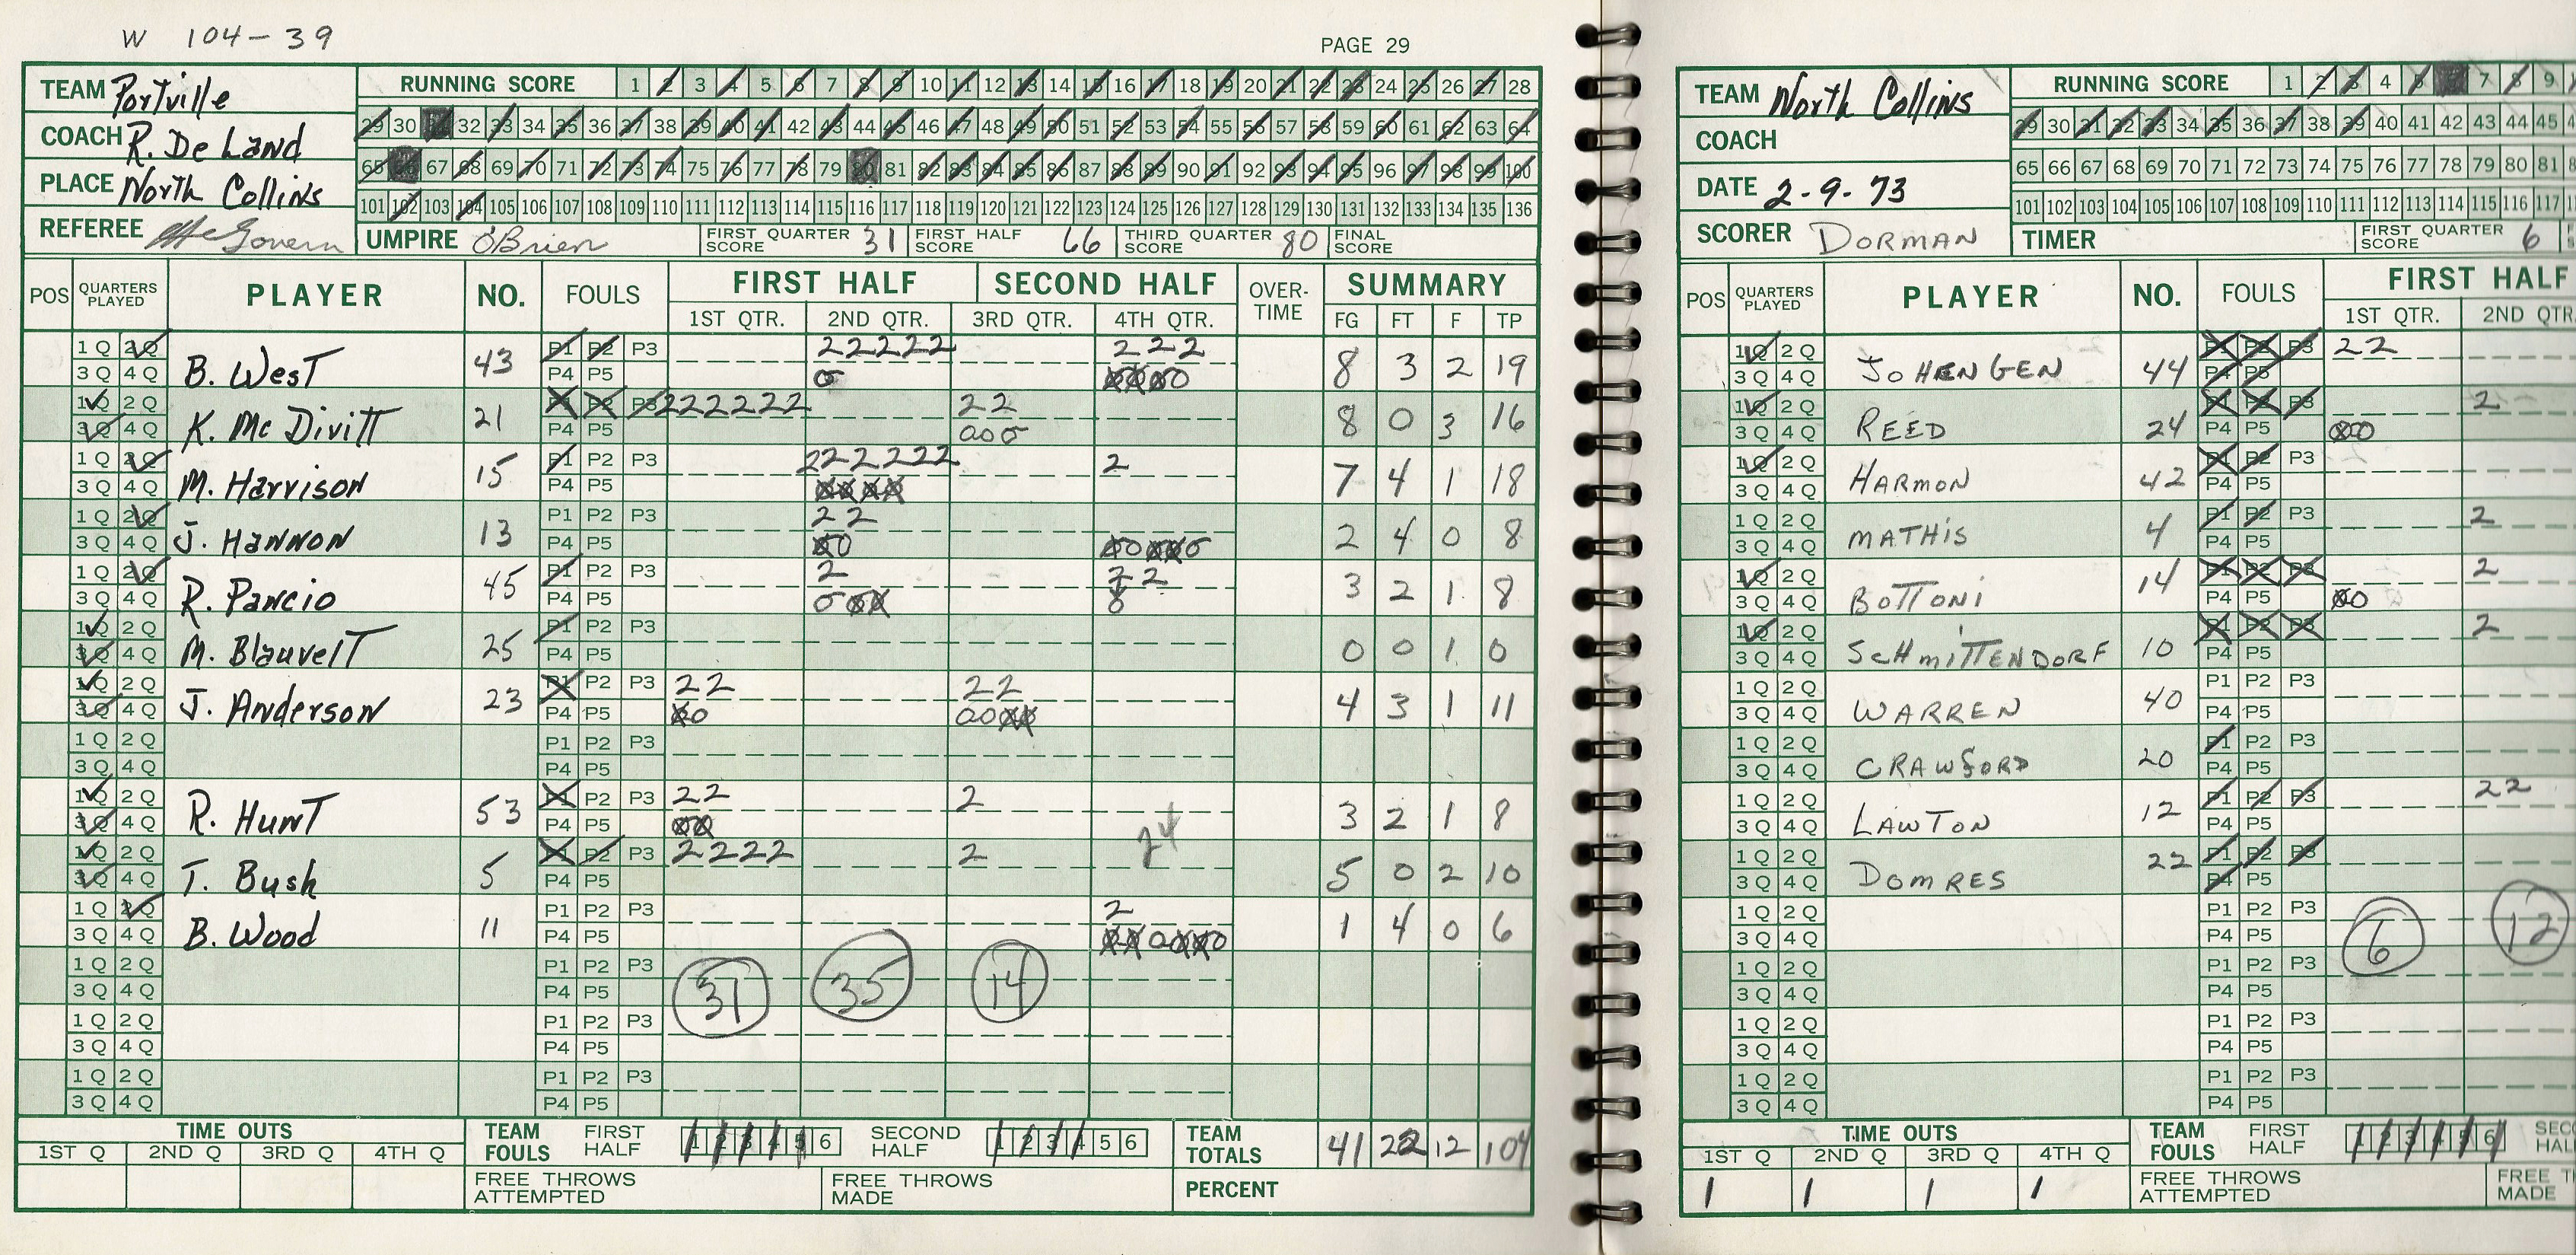 W 104-39
PAGE 29
TEAM Portville
COACH R. De Land
PLACE North Collins
REFEREE McGovern
RUNNING SCORE 1 2 3 4 5 6 7 8 9 10 11 12 13 14 15 16 17 18 19 20 21 22 23 24 25 26 27 28
29 30 31 32 33 34 35 36 37 38 39 40 41 42 43 44 45 46 47 48 49 50 51 52 53 54 55 56 57 58 59 60 61 62 63 64
65 66 67 68 69 70 71 72 73 74 75 76 77 78 79 80 81 82 83 84 85 86 87 88 89 90 91 92 93 94 95 96 97 98 99 100
101 102 103 104 105 106 107 108 109 110 111 112 113 114 115 116 117 118 119 120 121 122 123 124 125 126 127 128 129 130 131 132 133 134 135 136
UMPIRE O'Brien FIRST QUARTER SCORE 31 FIRST HALF SCORE 66 THIRD QUARTER SCORE 80 FINAL SCORE
POS QUARTERS PLAYED PLAYER NO. FOULS FIRST HALF SECOND HALF OVER-TIME SUMMARY
1ST QTR. 2ND QTR. 3RD QTR. 4TH QTR. FG FT F TP
1Q 2Q P1 P2 P3 22222 222
3Q 4Q B. West 43 P4 P5 8 3 2 19
1Q 2Q P1 P2 P3 222222 22
3Q 4Q K. Mc Divitt 21 P4 P5 000 8 0 3 16
1Q 2Q P1 P2 P3 222222 2
3Q 4Q M. Harrison 15 P4 P5 7 4 1 18
1Q 2Q P1 P2 P3 22
3Q 4Q J. Hannon 13 P4 P5 2 4 0 8
1Q 2Q P1 P2 P3 2 22
3Q 4Q R. Pancio 45 P4 P5 3 2 1 8
1Q 2Q P1 P2 P3
3Q 4Q M. Blauvelt 25 P4 P5 0 0 1 0
1Q 2Q P1 P2 P3 22 22
3Q 4Q J. Anderson 23 P4 P5 4 3 1 11
1Q 2Q P1 P2 P3
3Q 4Q P4 P5
1Q 2Q P1 P2 P3 22 2
3Q 4Q R. Hunt 53 P4 P5 24 3 2 1 8
1Q 2Q P1 P2 P3 2222 2
3Q 4Q T. Bush 5 P4 P5 5 0 2 10
1Q 2Q P1 P2 P3 2
3Q 4Q B. Wood 11 P4 P5 1 4 0 6
1Q 2Q P1 P2 P3
3Q 4Q P4 P5 31 35 14
1Q 2Q P1 P2 P3
3Q 4Q P4 P5
1Q 2Q P1 P2 P3
3Q 4Q P4 P5
TIME OUTS
1ST Q 2ND Q 3RD Q 4TH Q
TEAM FOULS FIRST HALF 1 2 3 4 5 6 SECOND HALF 1 2 3 4 5 6
TEAM TOTALS 41 22 12 104
FREE THROWS ATTEMPTED FREE THROWS MADE PERCENT
TEAM North Collins
COACH
DATE 2-9-73
SCORER DORMAN
RUNNING SCORE 1 2 3 4 5 6 7 8 9
29 30 31 32 33 34 35 36 37 38 39 40 41 42 43 44 45
65 66 67 68 69 70 71 72 73 74 75 76 77 78 79 80 81
101 102 103 104 105 106 107 108 109 110 111 112 113 114 115 116 117
TIMER FIRST QUARTER SCORE 6
POS QUARTERS PLAYED PLAYER NO. FOULS FIRST HALF
1ST QTR. 2ND QTR.
1Q 2Q P1 P2 P3 22
3Q 4Q JOHENGEN 44 P4 P5
1Q 2Q P1 P2 P3 2
3Q 4Q REED 24 P4 P5
1Q 2Q P1 P2 P3
3Q 4Q HARMON 42 P4 P5
1Q 2Q P1 P2 P3 2
3Q 4Q MATHIS 4 P4 P5
1Q 2Q P1 P2 P3 2
3Q 4Q BOTTONI 14 P4 P5
1Q 2Q P1 P2 P3 2
3Q 4Q SCHMITTENDORF 10 P4 P5
1Q 2Q P1 P2 P3
3Q 4Q WARREN 40 P4 P5
1Q 2Q P1 P2 P3
3Q 4Q CRAWFORD 20 P4 P5
1Q 2Q P1 P2 P3 22
3Q 4Q LAWTON 12 P4 P5
1Q 2Q P1 P2 P3
3Q 4Q DOMRES 22 P4 P5
1Q 2Q P1 P2 P3
3Q 4Q P4 P5 6 12
1Q 2Q P1 P2 P3
3Q 4Q P4 P5
1Q 2Q P1 P2 P3
3Q 4Q P4 P5
1Q 2Q P1 P2 P3
3Q 4Q P4 P5
TIME OUTS
1ST Q 2ND Q 3RD Q 4TH Q
1 1 1 1
TEAM FOULS FIRST HALF 1 2 3 4 5 6
FREE THROWS ATTEMPTED MADE